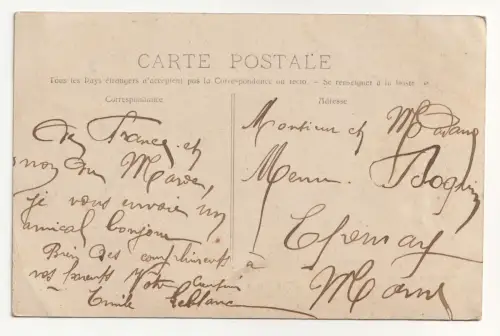 CARTE POSTALE
Tous les Pays étrangers n'acceptent pas la Correspondance au recto. - Se renseigner à la Poste
Correspondance
Adresse
De France et
non du Maroc,
je vous envoie un
amical bonjour
Bien des compliments
vos parents Votre cousin
Emile Leblanc
Monsieur et Madame
Menu
à
Epernay
Marne